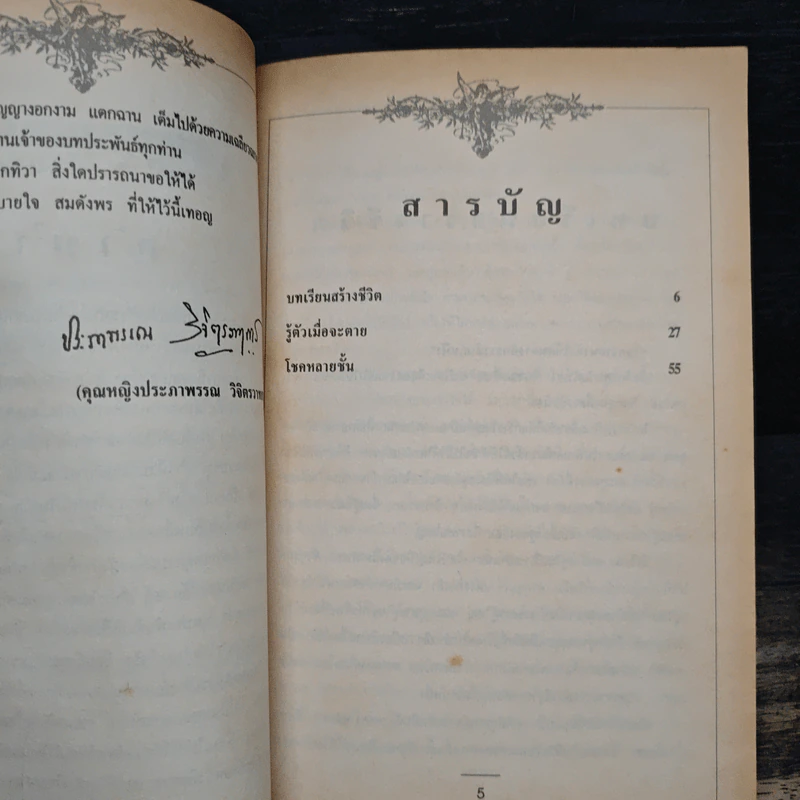 ญญางอกงาม แตกฉาน เต็มไปด้วยความเฉลียว
านเจ้าของบทประพันธ์ทุกท่าน
กทิวา สิ่งใดปรารถนาขอให้ได้
บายใจ สมดังพร ที่ให้ไว้นี้เทอญ
ประภาพรรณ วิจิตรวาทการ
(คุณหญิงประภาพรรณ วิจิตรวาท
สารบัญ
บทเรียนสร้างชีวิต 6
รู้ตัวเมื่อจะตาย 27
โชคหลายชั้น 55
5